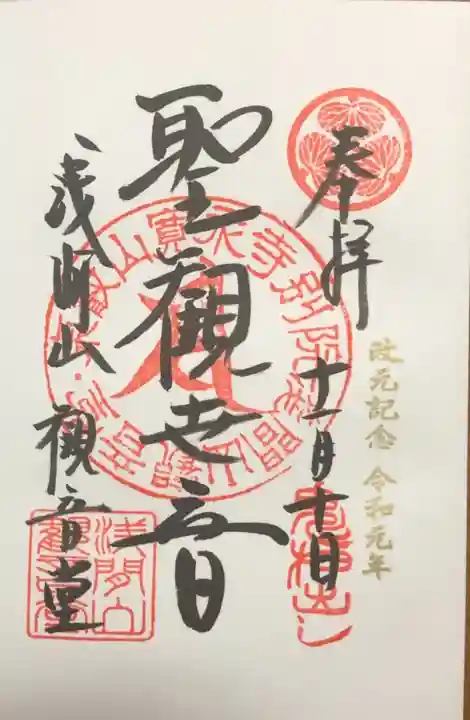 奉拝
十一月十日
改元記念 令和元年
聖観世音
浅間山 観音堂